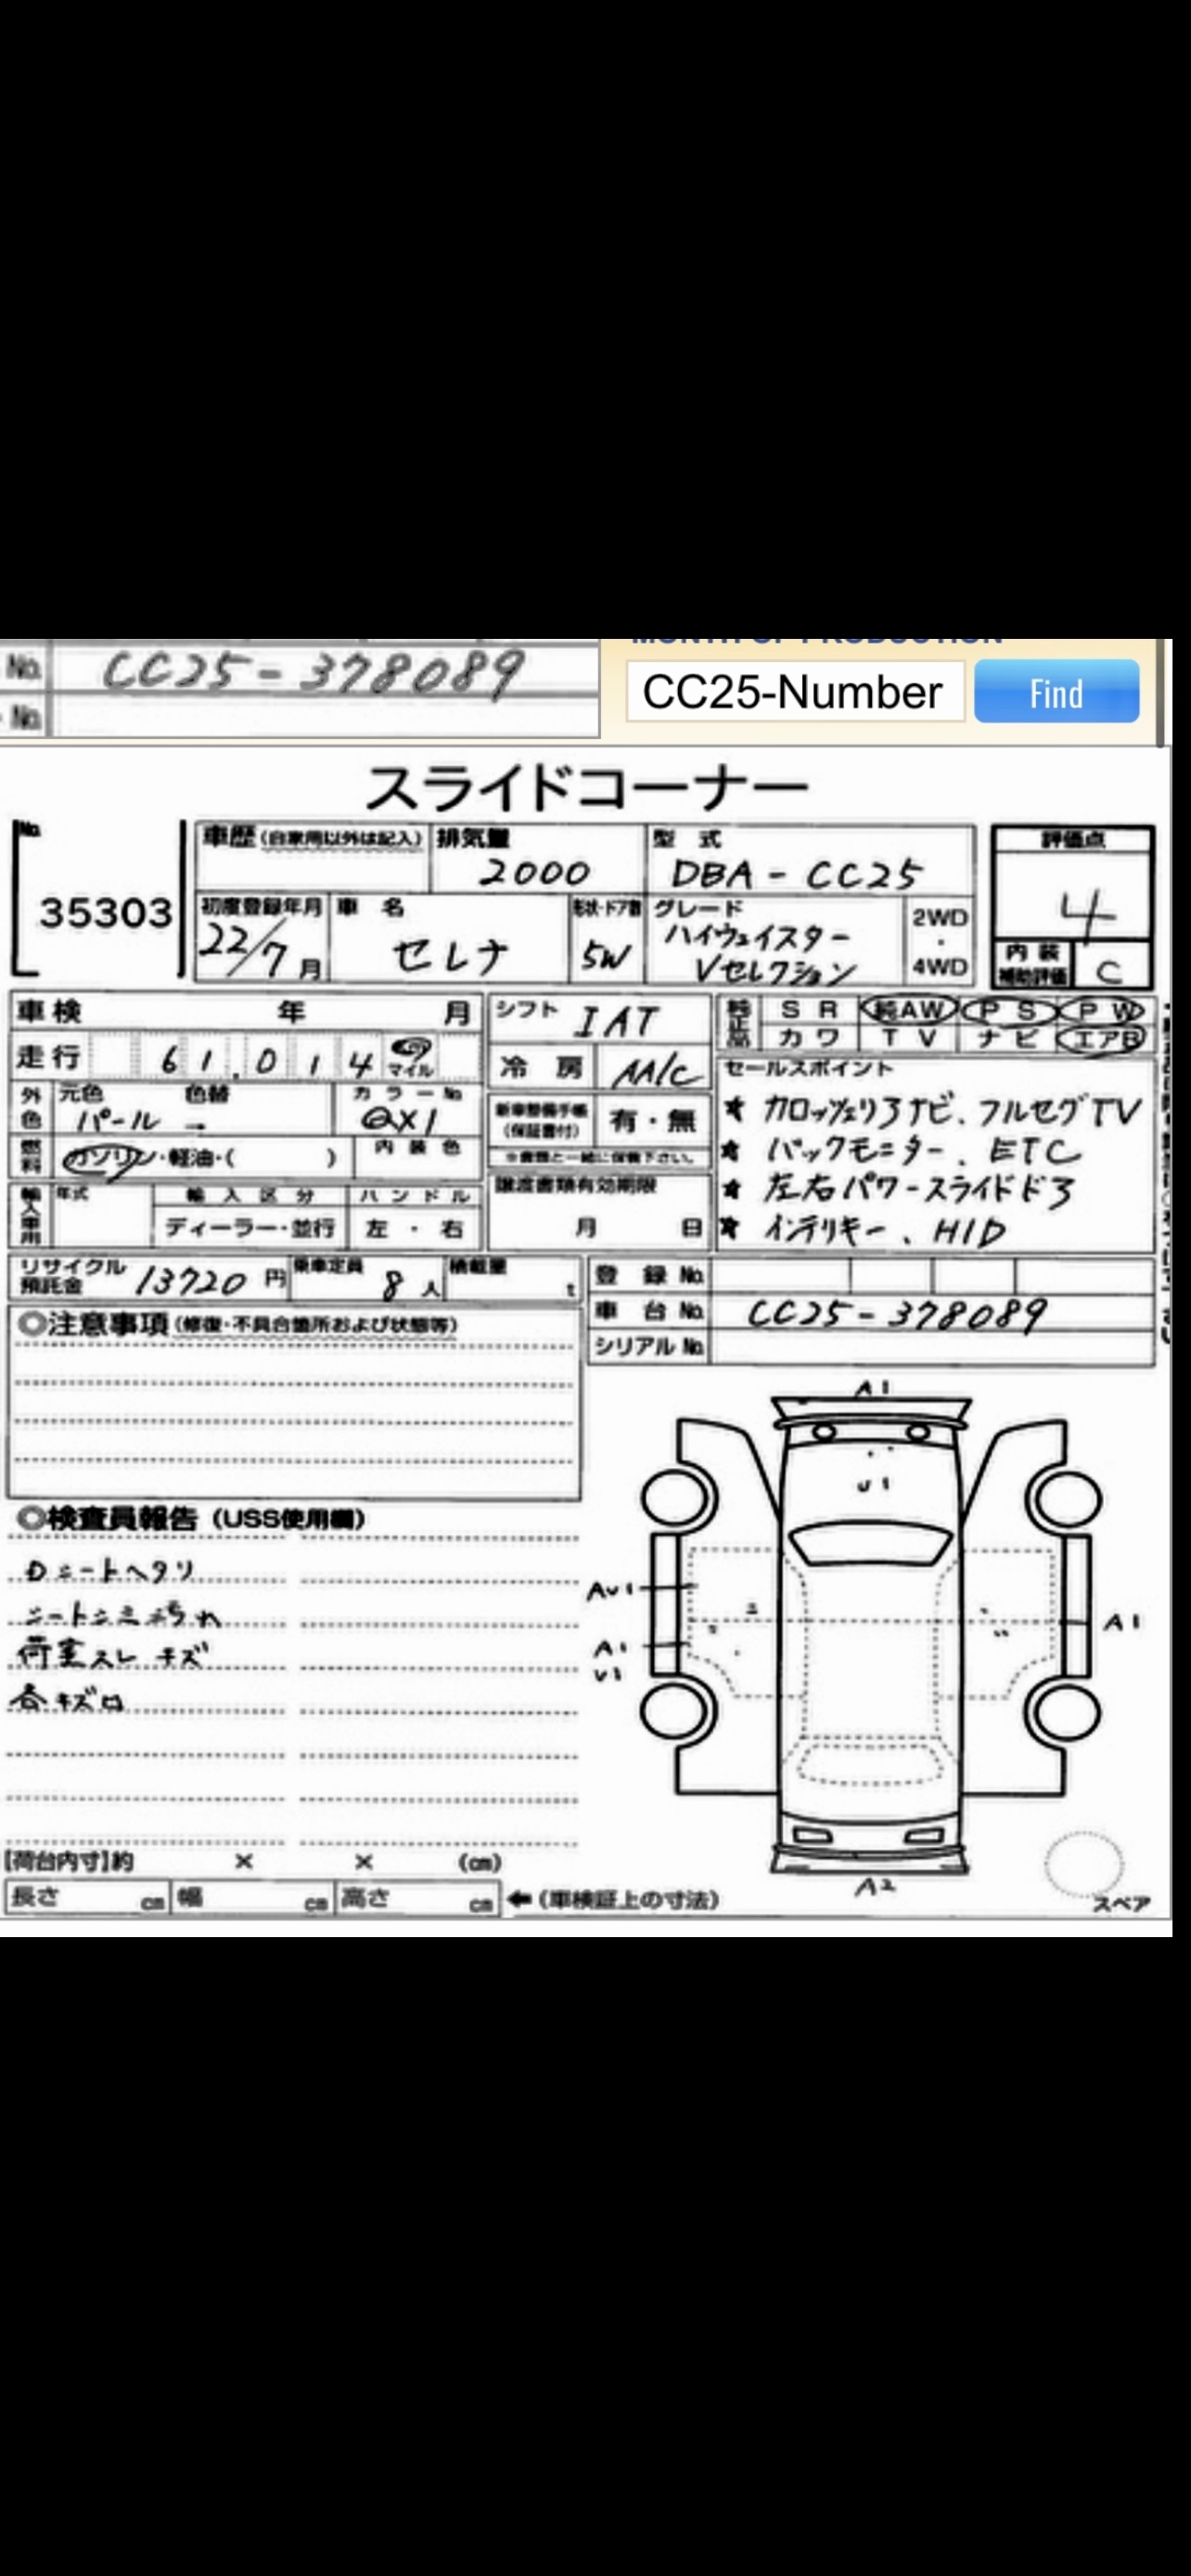 No. CC25-378089
No.
CC25-Number Find
スライドコーナー
No. 35303
車歴 (自家用以外は記入) 排気量 2000 型式 DBA-CC25 評価点 4
初度登録年月 22/7月 車名 セレナ 形状・ドア数 5W グレード ハイウェイスター Vセレクション 2WD・4WD 内装補助評価 C
車検 年 月 シフト IAT 純正品 SR 純AW PS PW
走行 61,014 マイル 冷房 AA/C カワ TV ナビ エアB
外色 元色 パール 色替 → カラーNo. QX1 新車整備手帳 (保証書付) 有・無 セールスポイント
★ カロッツェリアナビ、フルセグTV
燃料 ガソリン・軽油・( ) 内装色 ※書類と一緒に保管下さい。
★ バックモニター、ETC
輸入車用 年式 輸入区分 ディーラー・並行 ハンドル 左・右 譲渡書類有効期限 月 日
★ 左右パワースライドドア
★ インテリキー、HID
リサイクル預託金 13720円 乗車定員 8人 積載量 t 登録No.
車台No. CC25-378089
シリアルNo.
◎注意事項 (修復・不具合箇所および状態等)
◎検査員報告 (USS使用欄)
Dシートヘタリ
シートシミ 汚れ
荷室スレ キズ
各キズ凹
A1
U1
AU1
A1
U1
A1
A2
スペア
【荷台内寸】約 × × (cm)
長さ cm 幅 cm 高さ cm ←(車検証上の寸法)